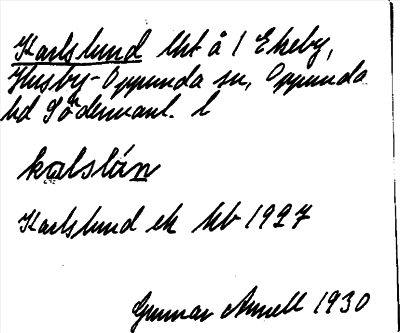 Karlslund lht å 1 Ekeby,
Husby-Oppunda sn, Oppunda
hd Södermanl. l
kalslán
Karlslund ek kb 1927
Gunnar Annell 1930